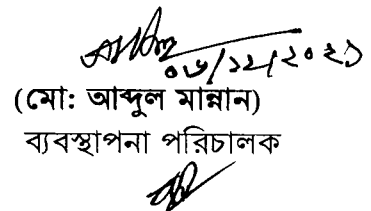 ০৬/১২/২০২১
(মো: আব্দুল মান্নান)
ব্যবস্থাপনা পরিচালক